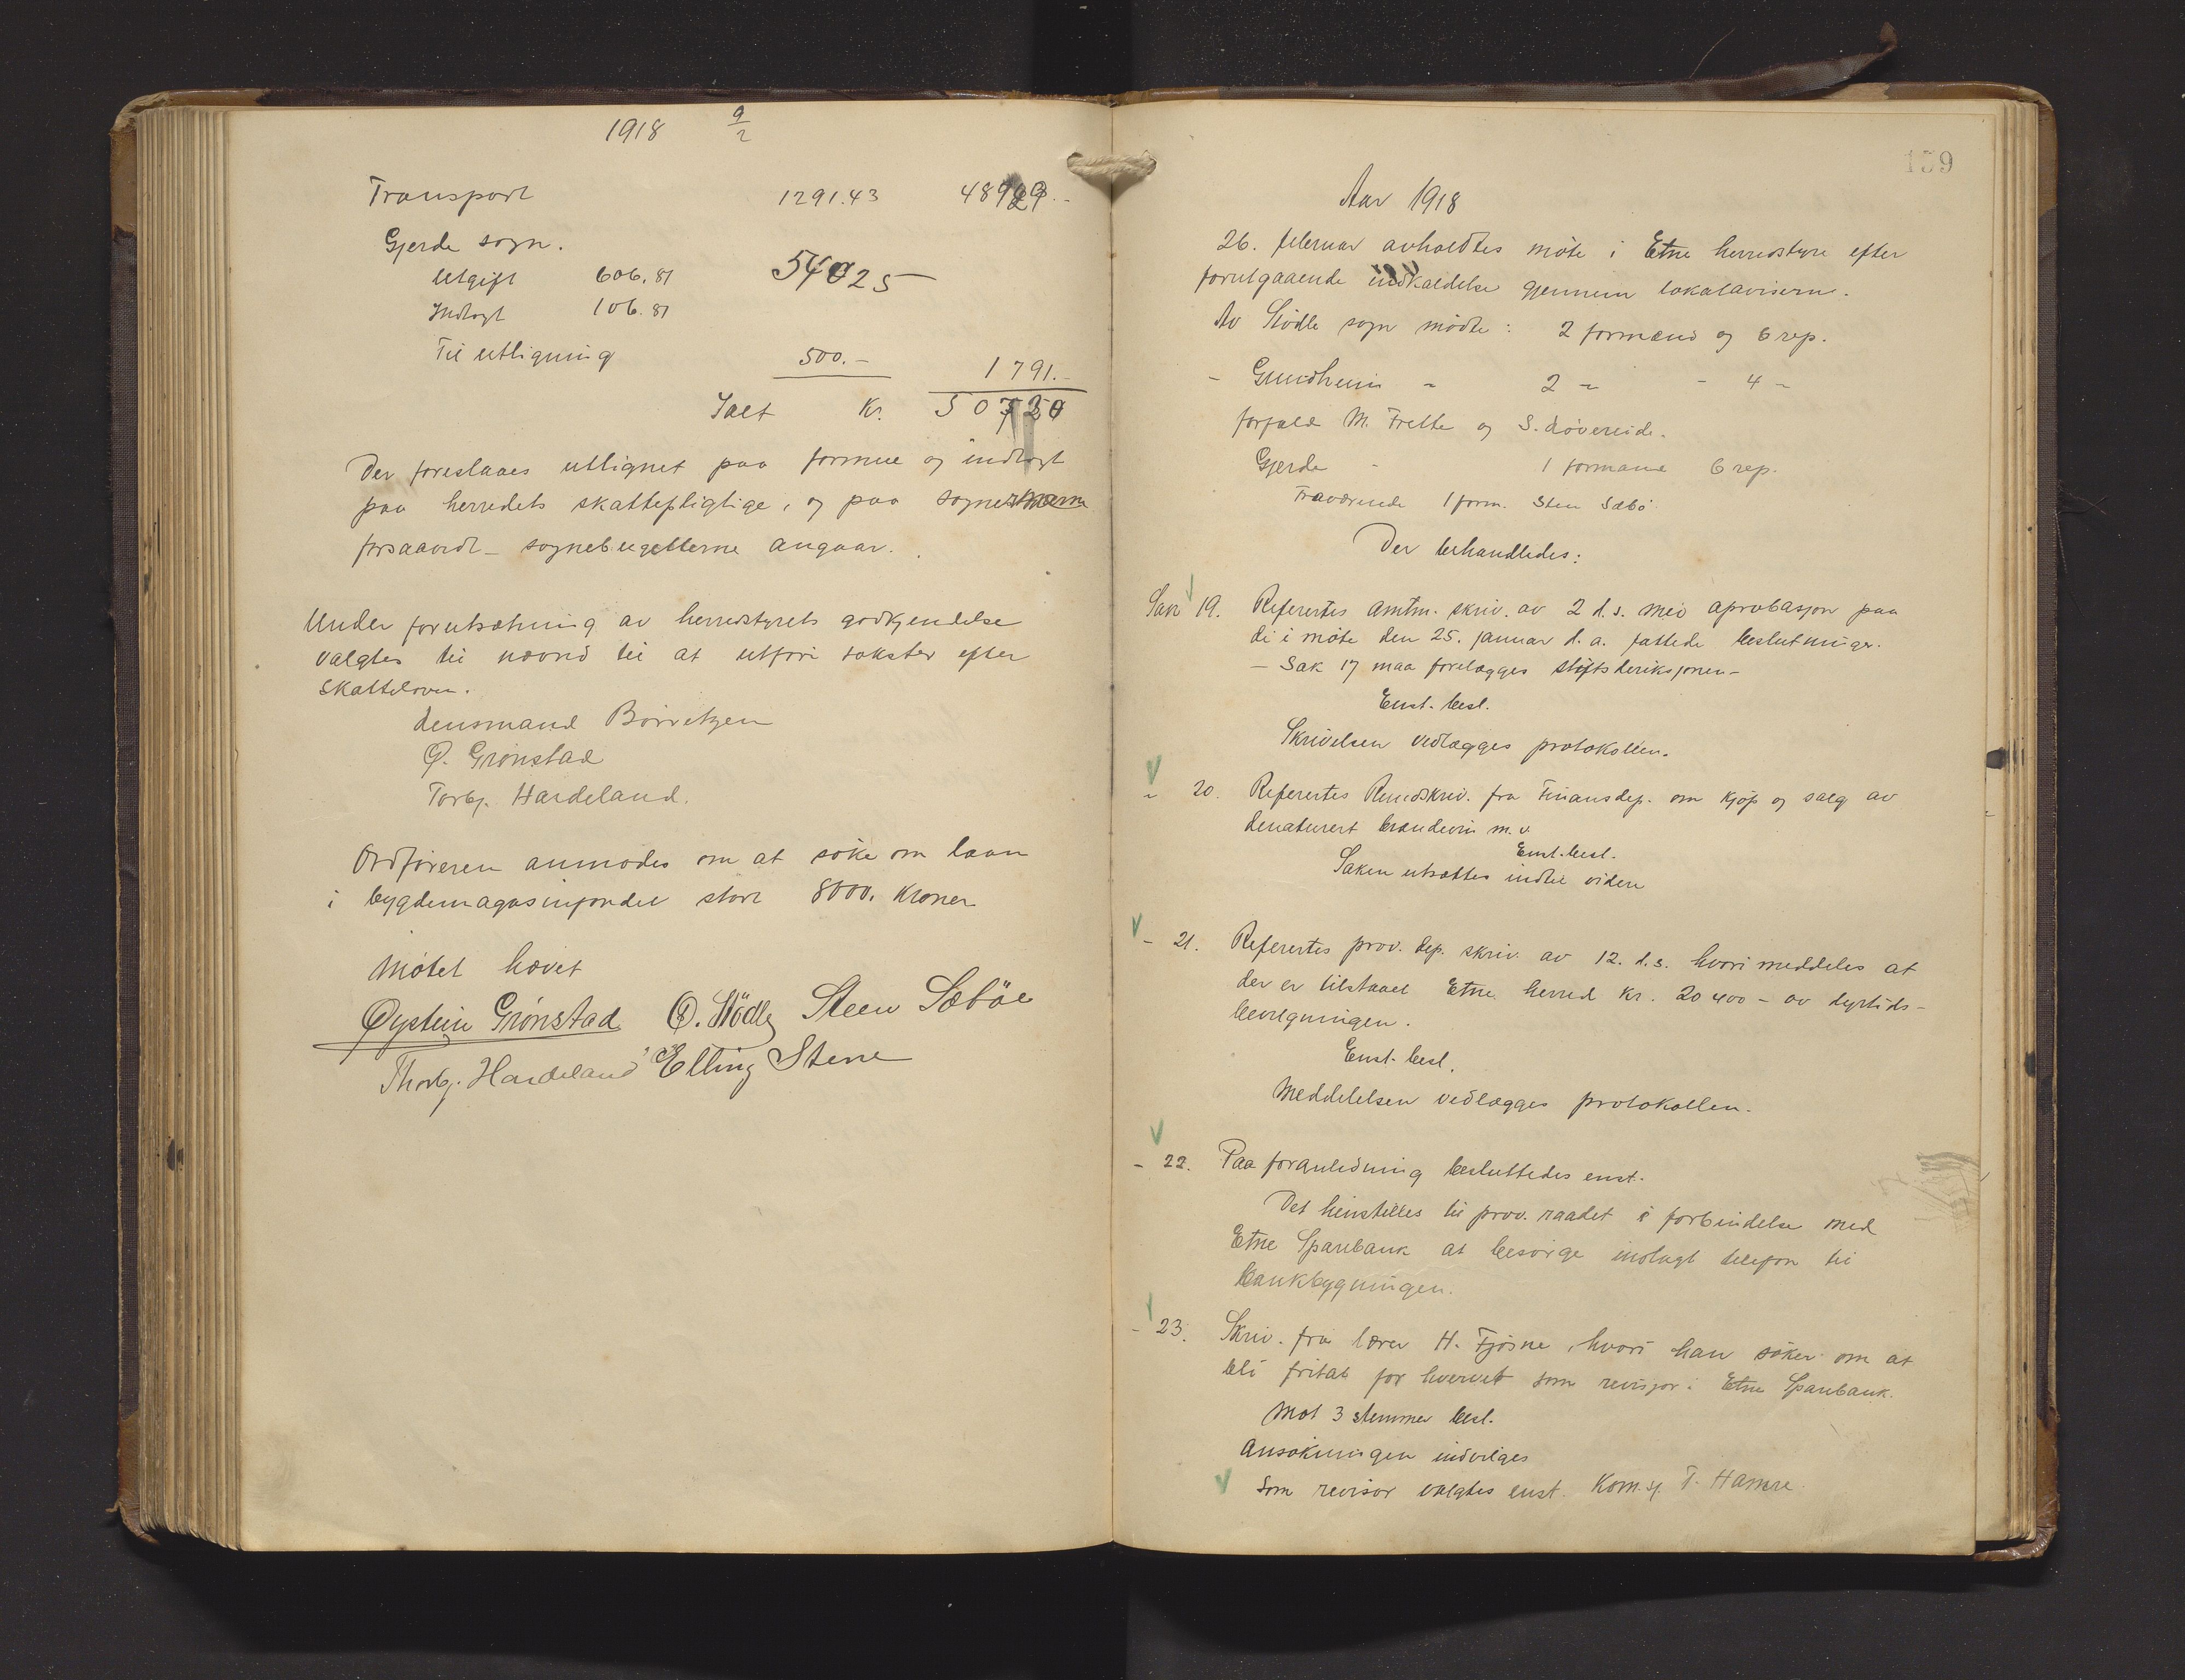 1918 9/2
Transport 1291.43 48929.-
Gjerde sogn.
Utgift 606.81 54025
Indtægt 106.81
Til utligning 500.- 1791.-
Ialt Kr. 50720
Der foreslaaes utlignet paa formue og indtægt
paa herredets skattepligtige, og paa sognenes
forsaavidt sognebugetterne angaar.
Under forutsætning av herredstyrets godkjendelse
valgtes til nævnd til at utføre takster efter
skatteloven.
Lensmand Børretzen
Ø. Grønstad
Torbj. Hardeland.
Ordføreren anmodes om at søke om laan
i bygdemagasinfondet stort 8000. Kroner
Møtet hævet
Øystein Grønstad O. Stödle Steen Sæböe
Thorbj. Hardeland Elling Stene
159
Aar 1918
26. februar avholdtes møte i Etne herredstyre efter
forutgaaende indkaldelse gjennem lokalaviserne.
Av Stødle sogn mødte: 2 formænd og 6 rep.
- Grindheim - 2 - - 4 -
forfald M. Frette og S. Løvereide.
Gjerde - 1 formand 6 rep.
Fraværende 1 form. Sten Sæbø
Der behandledes:
Sak 19. Referertes amtm. skriv. av 2 d.s. med aprobasjon paa
de i møte den 25. januar d.a. fattede beslutninger.
- Sak 17 maa forelægges stiftsdireksjonen -
Enst. besl.
Skrivelsen vedlægges protokollen.
- 20. Referertes Rundskriv. fra Finansdep. om kjøp og salg av
denaturert brændevin m.v.
Enst. besl.
Saken utsættes indtil videre
- 21. Referertes prov. dep. skriv. av 12. d.s. hvori meddeles at
der er tilstaaet Etne herred kr. 20400 - av dyrtids-
bevilgningen.
Enst. besl.
Meddelelsen vedlægges protokollen.
- 22. Paa foranledning besluttedes enst.
Det henstilles til prov. raadet i forbindelse med
Etne Sparebank at besørge indlagt telefon til
bankbygningen.
- 23. Skriv. fra lærer H. Fjøsne, hvori han søker om at
bli fritat for hvervet som revisor i Etne Sparebank.
Mot 3 stemmer besl.
Ansøkningen indvilges
Som revisor valgtes enst. Kom.sj. T. Hamre.